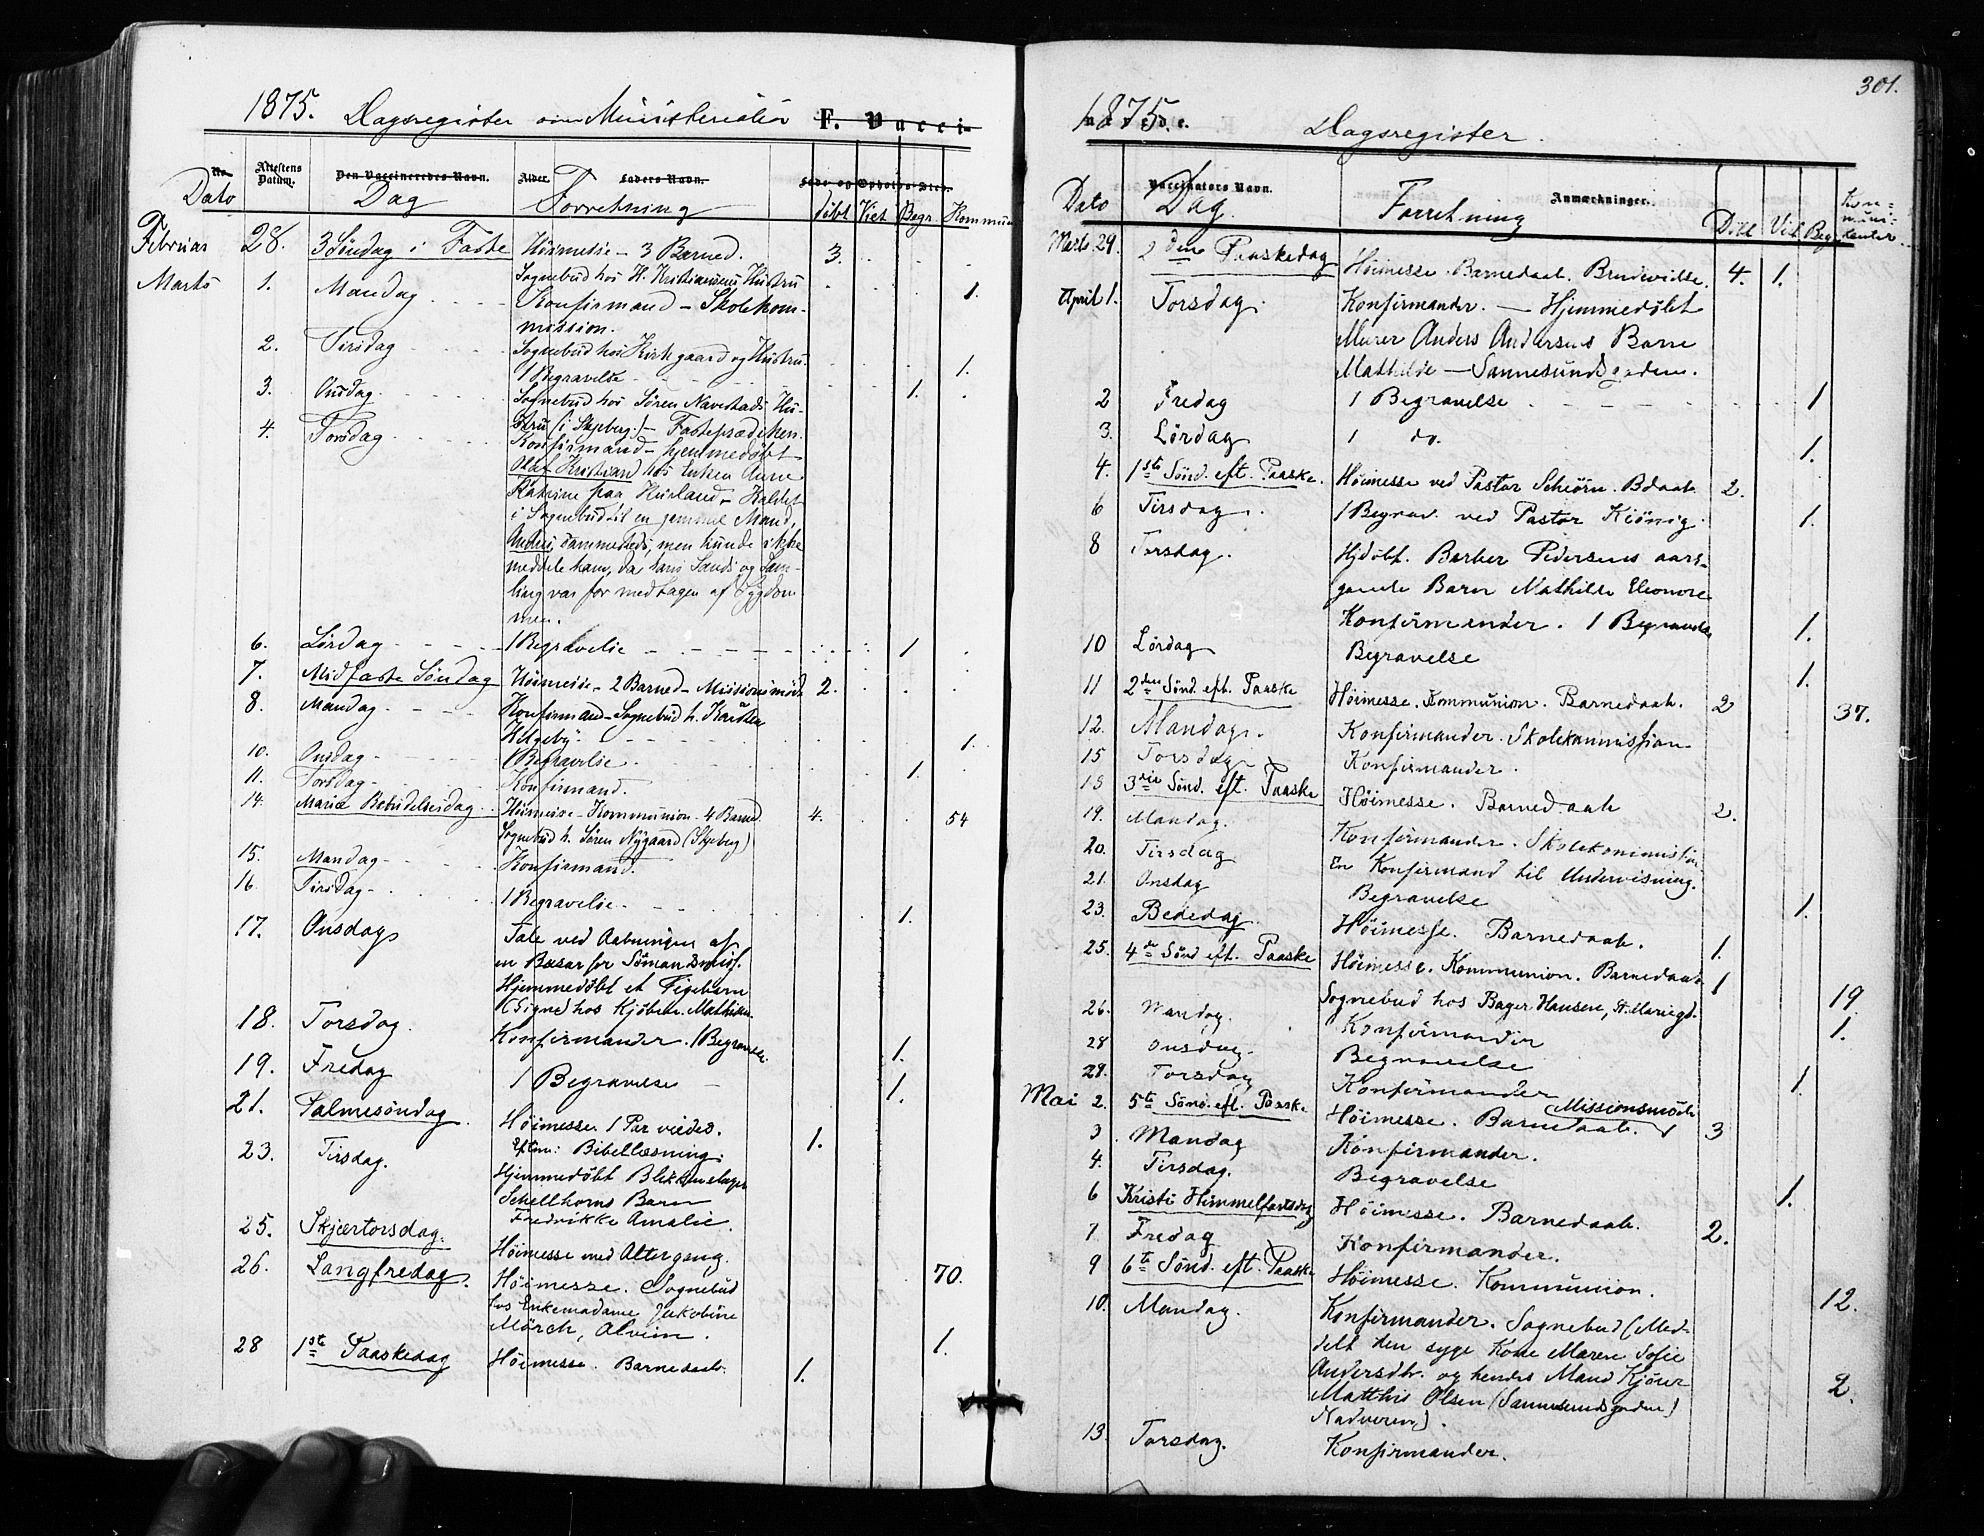 1875. Dagsregister over Ministerialia F. Vacci-
No Attestens Datum. Den Vaccineredes Navn. Alder. Faders Navn. Føde- og Opholds-Sted.
Dato Dag Forretning Døbt Viet Begr. Kommun
Februar 28. 3 Søndag i Faste Høimesse - 3 Barned. 3.
Marts 1. Mandag Sognebud hos H. Kristiansens Hustru 1.
Konfirmand - Skolekom-
mission.
2. Tirsdag Sognebud hos Kirkgaard og Hustru. 1.
1 Begravelse 1.
3. Onsdag Sognebud hos Søren Navestads Hu-
4. Torsdag stru (i Skjeberg.) - Fasteprædiken.
Konfirmand - hjemmedøbt
Olaf Kristian hos Enken Anne
Katrine paa Hurland - Kaldet
i Sognebud til en gammel Mand,
Anders, sammesteds, men kunde ikke
meddele ham, da hans Sands og Sam-
ling var for medtagen af Sygdom
men.
6. Lørdag 1 Begravelse 1
7. Midfaste Søndag Høimesse - 2 Barned - Missionsmøde 2.
8. Mandag Konfirmand - Sognebud h. Karsten
Helgeby 1.
10. Onsdag 1 Begravelse 1.
11. Torsdag Konfirmand.
14. Mariæ Bebudelsesdag Høimesse - Kommunion - 4 Barned. 4. 54
Sognebud h. Søren Nygaard (Skjeberg)
15. Mandag Konfirmand.
16. Tirsdag 1 Begravelse 1.
17. Onsdag Tale ved Aabningen af
en Basar for Sømandsmiss.
Hjemmedøbt et Pigebarn
(Signe) hos Kjøbm. Mathisen.
18. Torsdag. Konfirmander. 1 Begravelse. 1.
19. Fredag 1 Begravelse 1.
21. Palmesøndag. Høimesse. 1 Par viedes. 1.
Eftm: Bibellæsning.
23. Tirsdag. Hjemmedøbt Blikkenslager
Schellhorns Barn
Fredrikke Amalie.
25. Skjærtorsdag. Høimesse med Altergang. 70.
26. Langfredag. Høimesse. Sognebud
hos Enkemadame Jakobine
Mørch, Alvim. 1.
28 1ste Paaskedag Høimesse. Barnedaab. 1.
301.
1875. nerede. Dagsregister.
Vaccinators Navn. Anmærkninger.
Dato Dag. Forretning Døbt Vit Beg. Kom-
muni-
kanter
Marts 29. 2den Paaskedag Høimesse. Barnedaab. Brudevielse. 4. 1.
April 1. Torsdag. Konfirmander. - Hjemmedøbt
Murer Anders Andersens Barn
Mathilde - Sannesundsgaden.
2 Fredag 1 Begravelse 1
3. Lørdag 1 do. 1.
4. 1ste Sønd. eft. Paaske. Høimesse ved Pastor Schiørn. Bdaab. 2.
6 Tirsdag. 1 Begrav. ved Pastor Kiønig. 1.
8 Torsdag. Hjdøbt. Barber Pedersens aars-
gamle Barn Mathilde Eleonore
Konfirmander. 1 Begravelse 1.
10 Lørdag Begravelse 1.
11 2den Sønd. eft. Paaske Høimesse. Kommunion. Barnedaab. 2 37.
12. Mandag. Konfirmander. Skolekommission
15 Torsdag Konfirmander.
18 3die Sønd. eft. Paaske Høimesse. Barnedaab 2.
19. Mandag. Konfirmander. Skolekommission
20. Tirsdag En Konfirmand til Undervisning.
21. Onsdag Begravelse 1.
23. Bededag. Høimesse. Barnedaab. 1.
25. 4de Sønd eft. Paaske Høimesse. Kommunion. Barnedaab 1 19.
Sognebud hos Bager Hansen, St. Mariegd. 1.
26. Mandag. Konfirmander
28 Onsdag. Begravelse 1.
29. Torsdag Konfirmander
Mai 2. 5te Sønd. eft. Paaske Høimesse. Barnedaab. Missionsmøde 3
3 Mandag Konfirmander.
4. Tirsdag. Begravelse 1.
6 Kristi Himmelfartsdag Høimesse. Barnedaab. 2.
7 Fredag Konfirmander.
9 6te Sønd. eft. Paaske Høimesse. Kommunion. 12.
10. Mandag. Konfirmander. Sognebud (Med-
delt den syge Kone Maren Sofie
Andersdtr. og hendes Mand Kjører
Matthis Olsen (Sannesundsgaden)
Nadveren). 2.
13. Torsdag. Konfirmander.